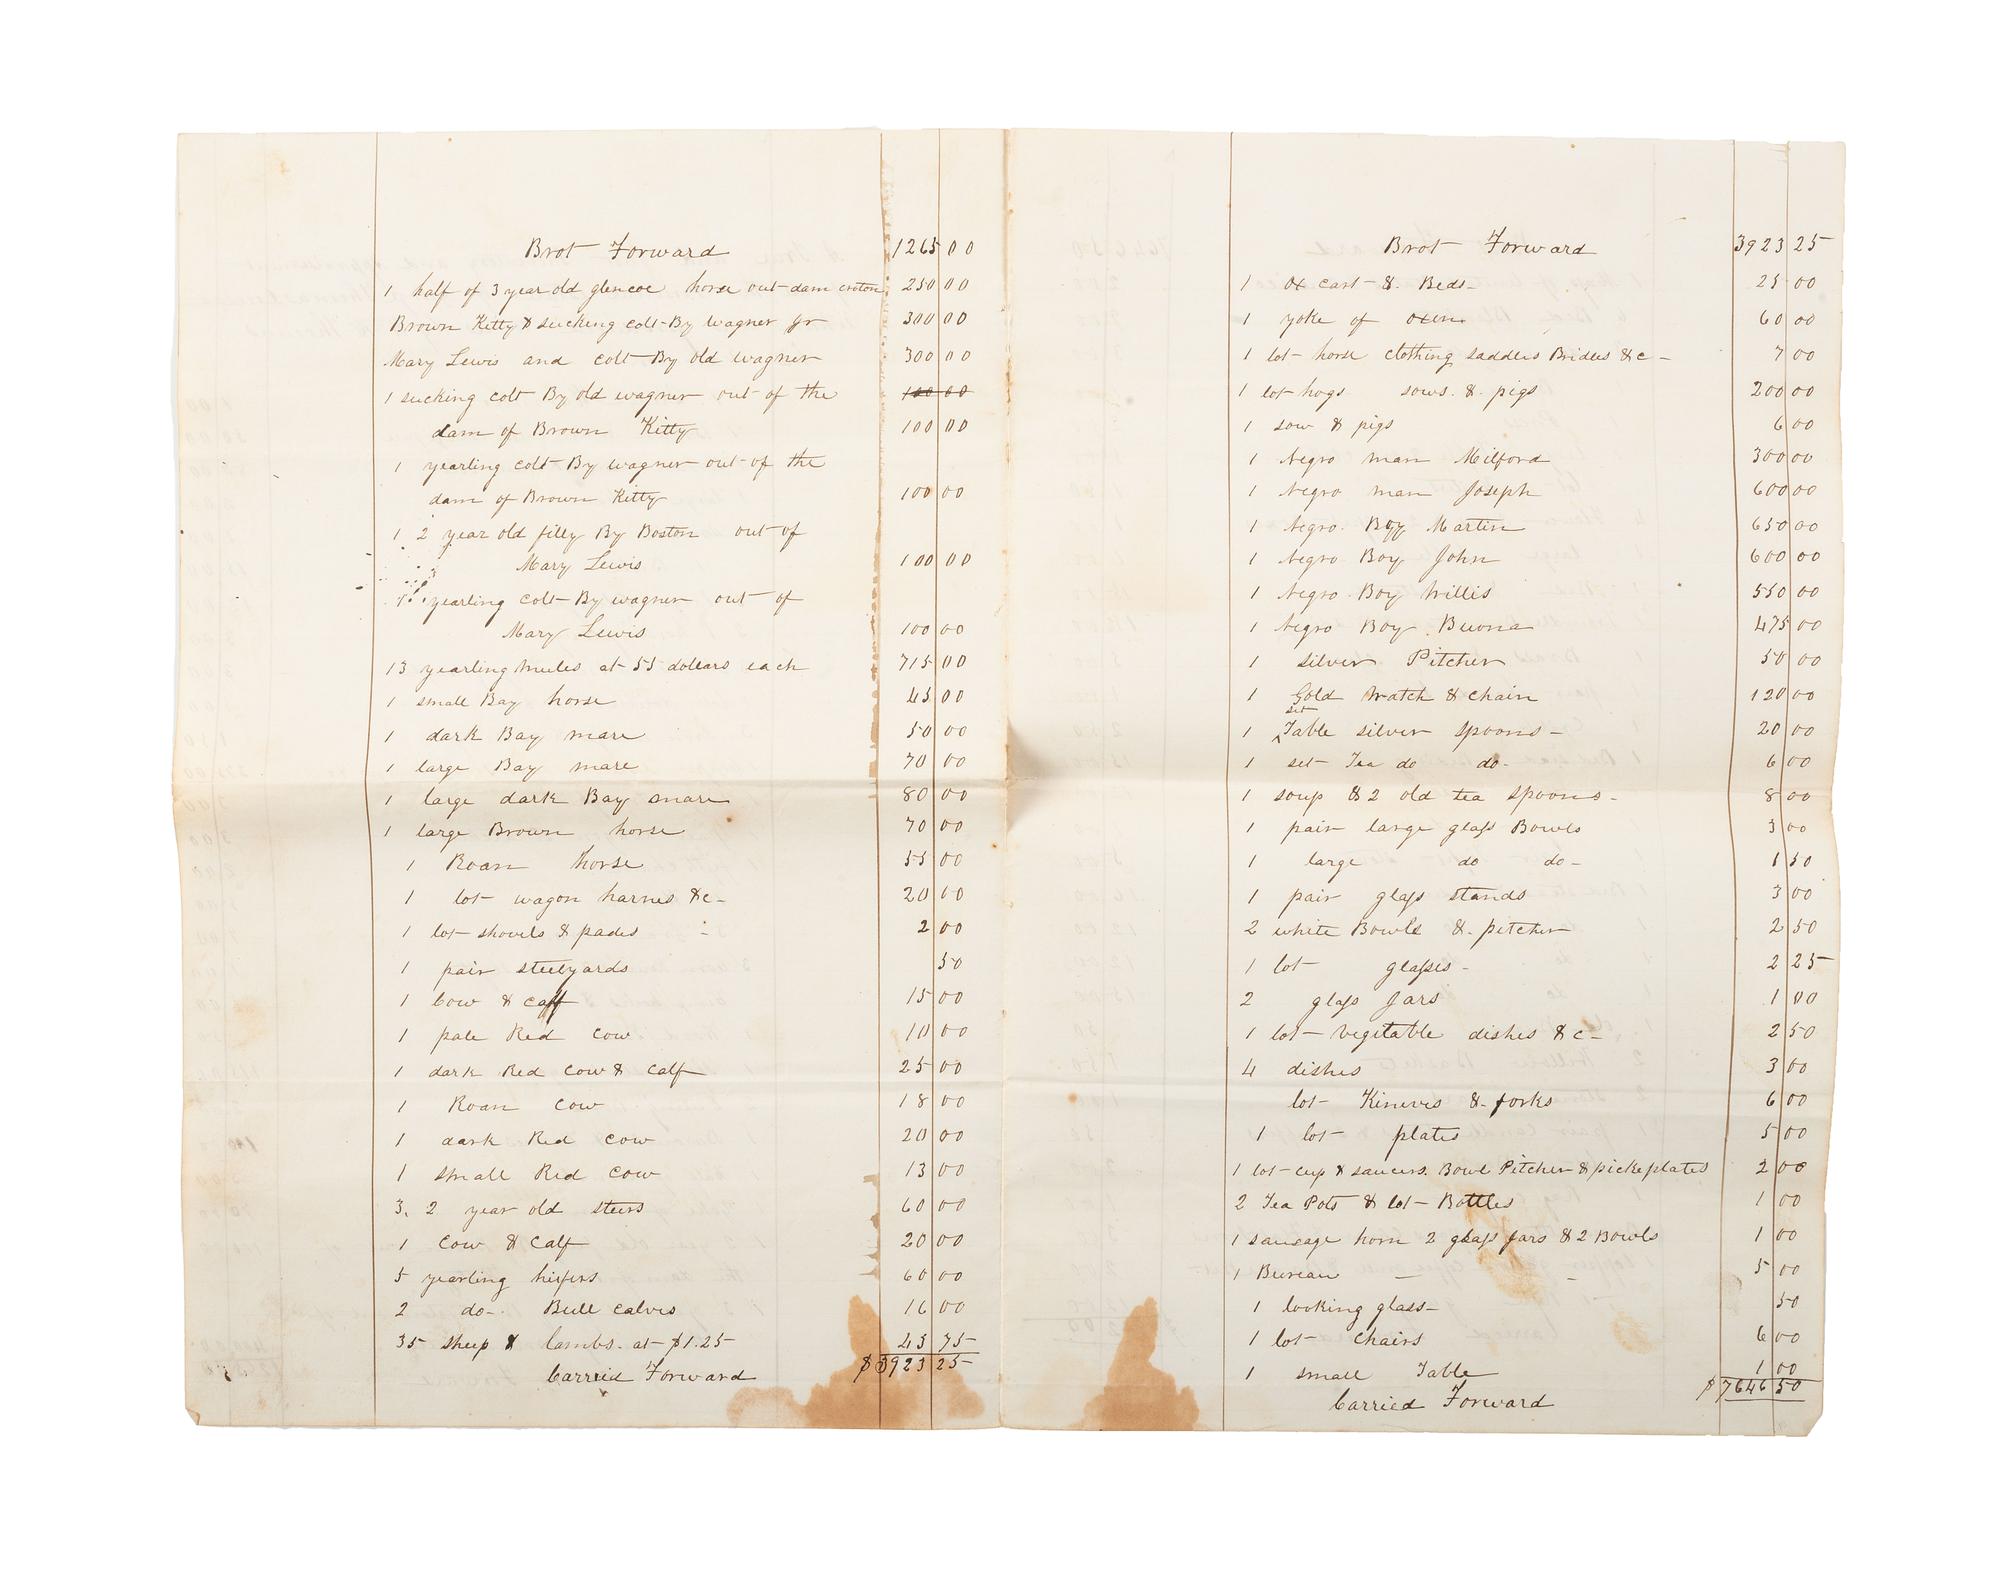 Brot Forward 1265 00
1 half of 3 year old glencoe horse out dam croton 250 00
Brown Kitty & sucking colt By wagner Jr 300 00
Mary Lewis and colt By old wagner 300 00
1 sucking colt By old wagner out of the 100 00
dam of Brown Kitty 100 00
1 yearling colt By wagner out of the
dam of Brown Kitty 100 00
1 2 year old filly By Boston out of
Mary Lewis 100 00
1 yearling colt By wagner out of
Mary Lewis 100 00
13 yearling mules at 55 dollars each 715 00
1 small Bay horse 45 00
1 dark Bay mare 50 00
1 large Bay mare 70 00
1 large dark Bay mare 80 00
1 large Brown horse 70 00
1 Roan horse 55 00
1 lot wagon harnes &c 20 00
1 lot shovels & pades 2 00
1 pair steelyards 50
1 Cow & calf 15 00
1 pale Red cow 10 00
1 dark Red Cow & Calf 25 00
1 Roan Cow 18 00
1 dark Red cow 20 00
1 small Red cow 13 00
3. 2 year old steers 60 00
1 Cow & Calf 20 00
5 yearling heifers 60 00
2 do Bull calves 16 00
35 sheep & lambs. at $1.25 43 75
$3923 25
Carried Forward
Brot Forward 3923 25
1 ox cart & Beds 25 00
1 yoke of oxen 60 00
1 lot horse clothing saddles Bridles &c 7 00
1 lot hogs sows. & pigs 200 00
1 sow & pigs 6 00
1 Negro man Milford 300 00
1 Negro man Joseph 600 00
1 Negro Boy Martin 650 00
1 Negro Boy John 600 00
1 Negro Boy Willis 550 00
1 Negro Boy Buona 475 00
1 silver Pitcher 50 00
1 Gold Watch & chain 120 00
set
1 Table silver spoons 20 00
1 set Tea do do 6 00
1 soup & 2 old tea spoons 8 00
1 pair large glass Bowls 3 00
1 large do do 1 50
1 pair glass stands 3 00
2 white Bowls & pitcher 2 50
1 lot glasses 2 25
2 glass Jars 1 00
1 lot vegitable dishes &c 2 50
4 dishes 3 00
lot Kineves & forks 6 00
1 lot plates 5 00
1 lot cup & saucers. Bowl Pitcher & pickeplates 2 00
2 Tea Pots & lot Bottles 1 00
1 sausage horn 2 glass Jars & 2 Bowls 1 00
1 Bureau 5 00
1 looking glass 50
1 lot Chairs 6 00
1 small Table 1 00
$7646 50
Carried Forward